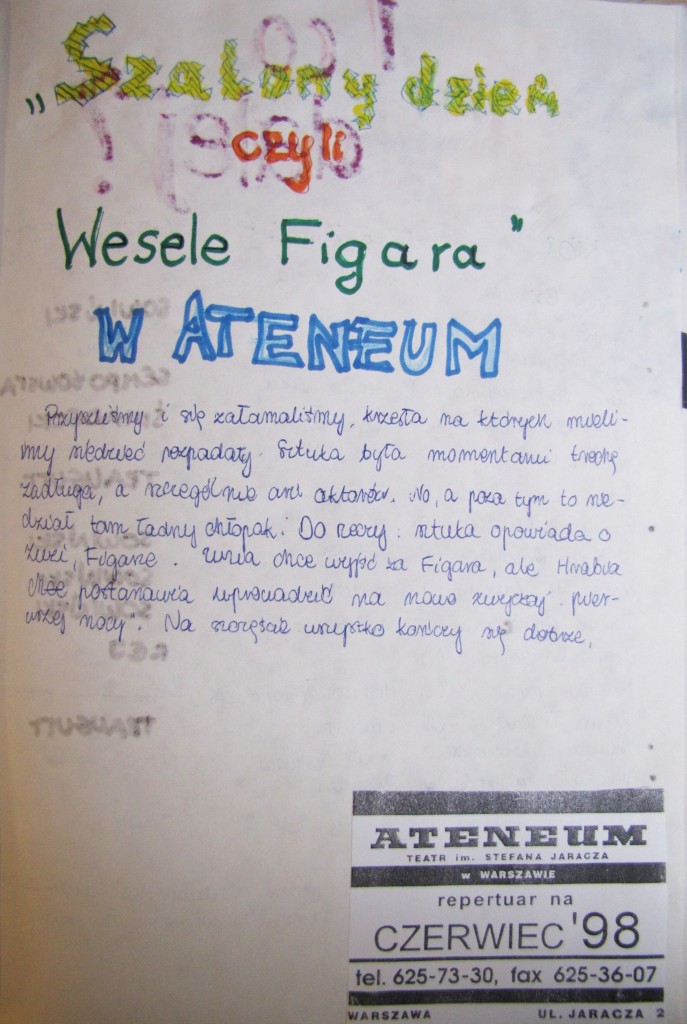 „Szalony dzień
czyli
Wesele Figara"
W ATENEUM
Przyszliśmy i się załamaliśmy, krzesła na których mieli-
my siedzieć rozpadały. Sztuka była momentami trochę
zadługa, a szczególnie arie aktorów. No, a poza tym to sie-
dział tam ładny chłopak! Do rzeczy: sztuka opowiada o
Zuzi, Figarze. Zuzia chce wyjść za Figara, ale Hrabia
chce postanawia wprowadzić na nowo zwyczaj "pier-
wszej nocy". Na szczęście wszystko kończy się dobrze.
ATENEUM
TEATR im. STEFANA JARACZA
w WARSZAWIE
repertuar na
CZERWIEC '98
tel. 625-73-30, fax 625-36-07
WARSZAWA UL. JARACZA 2